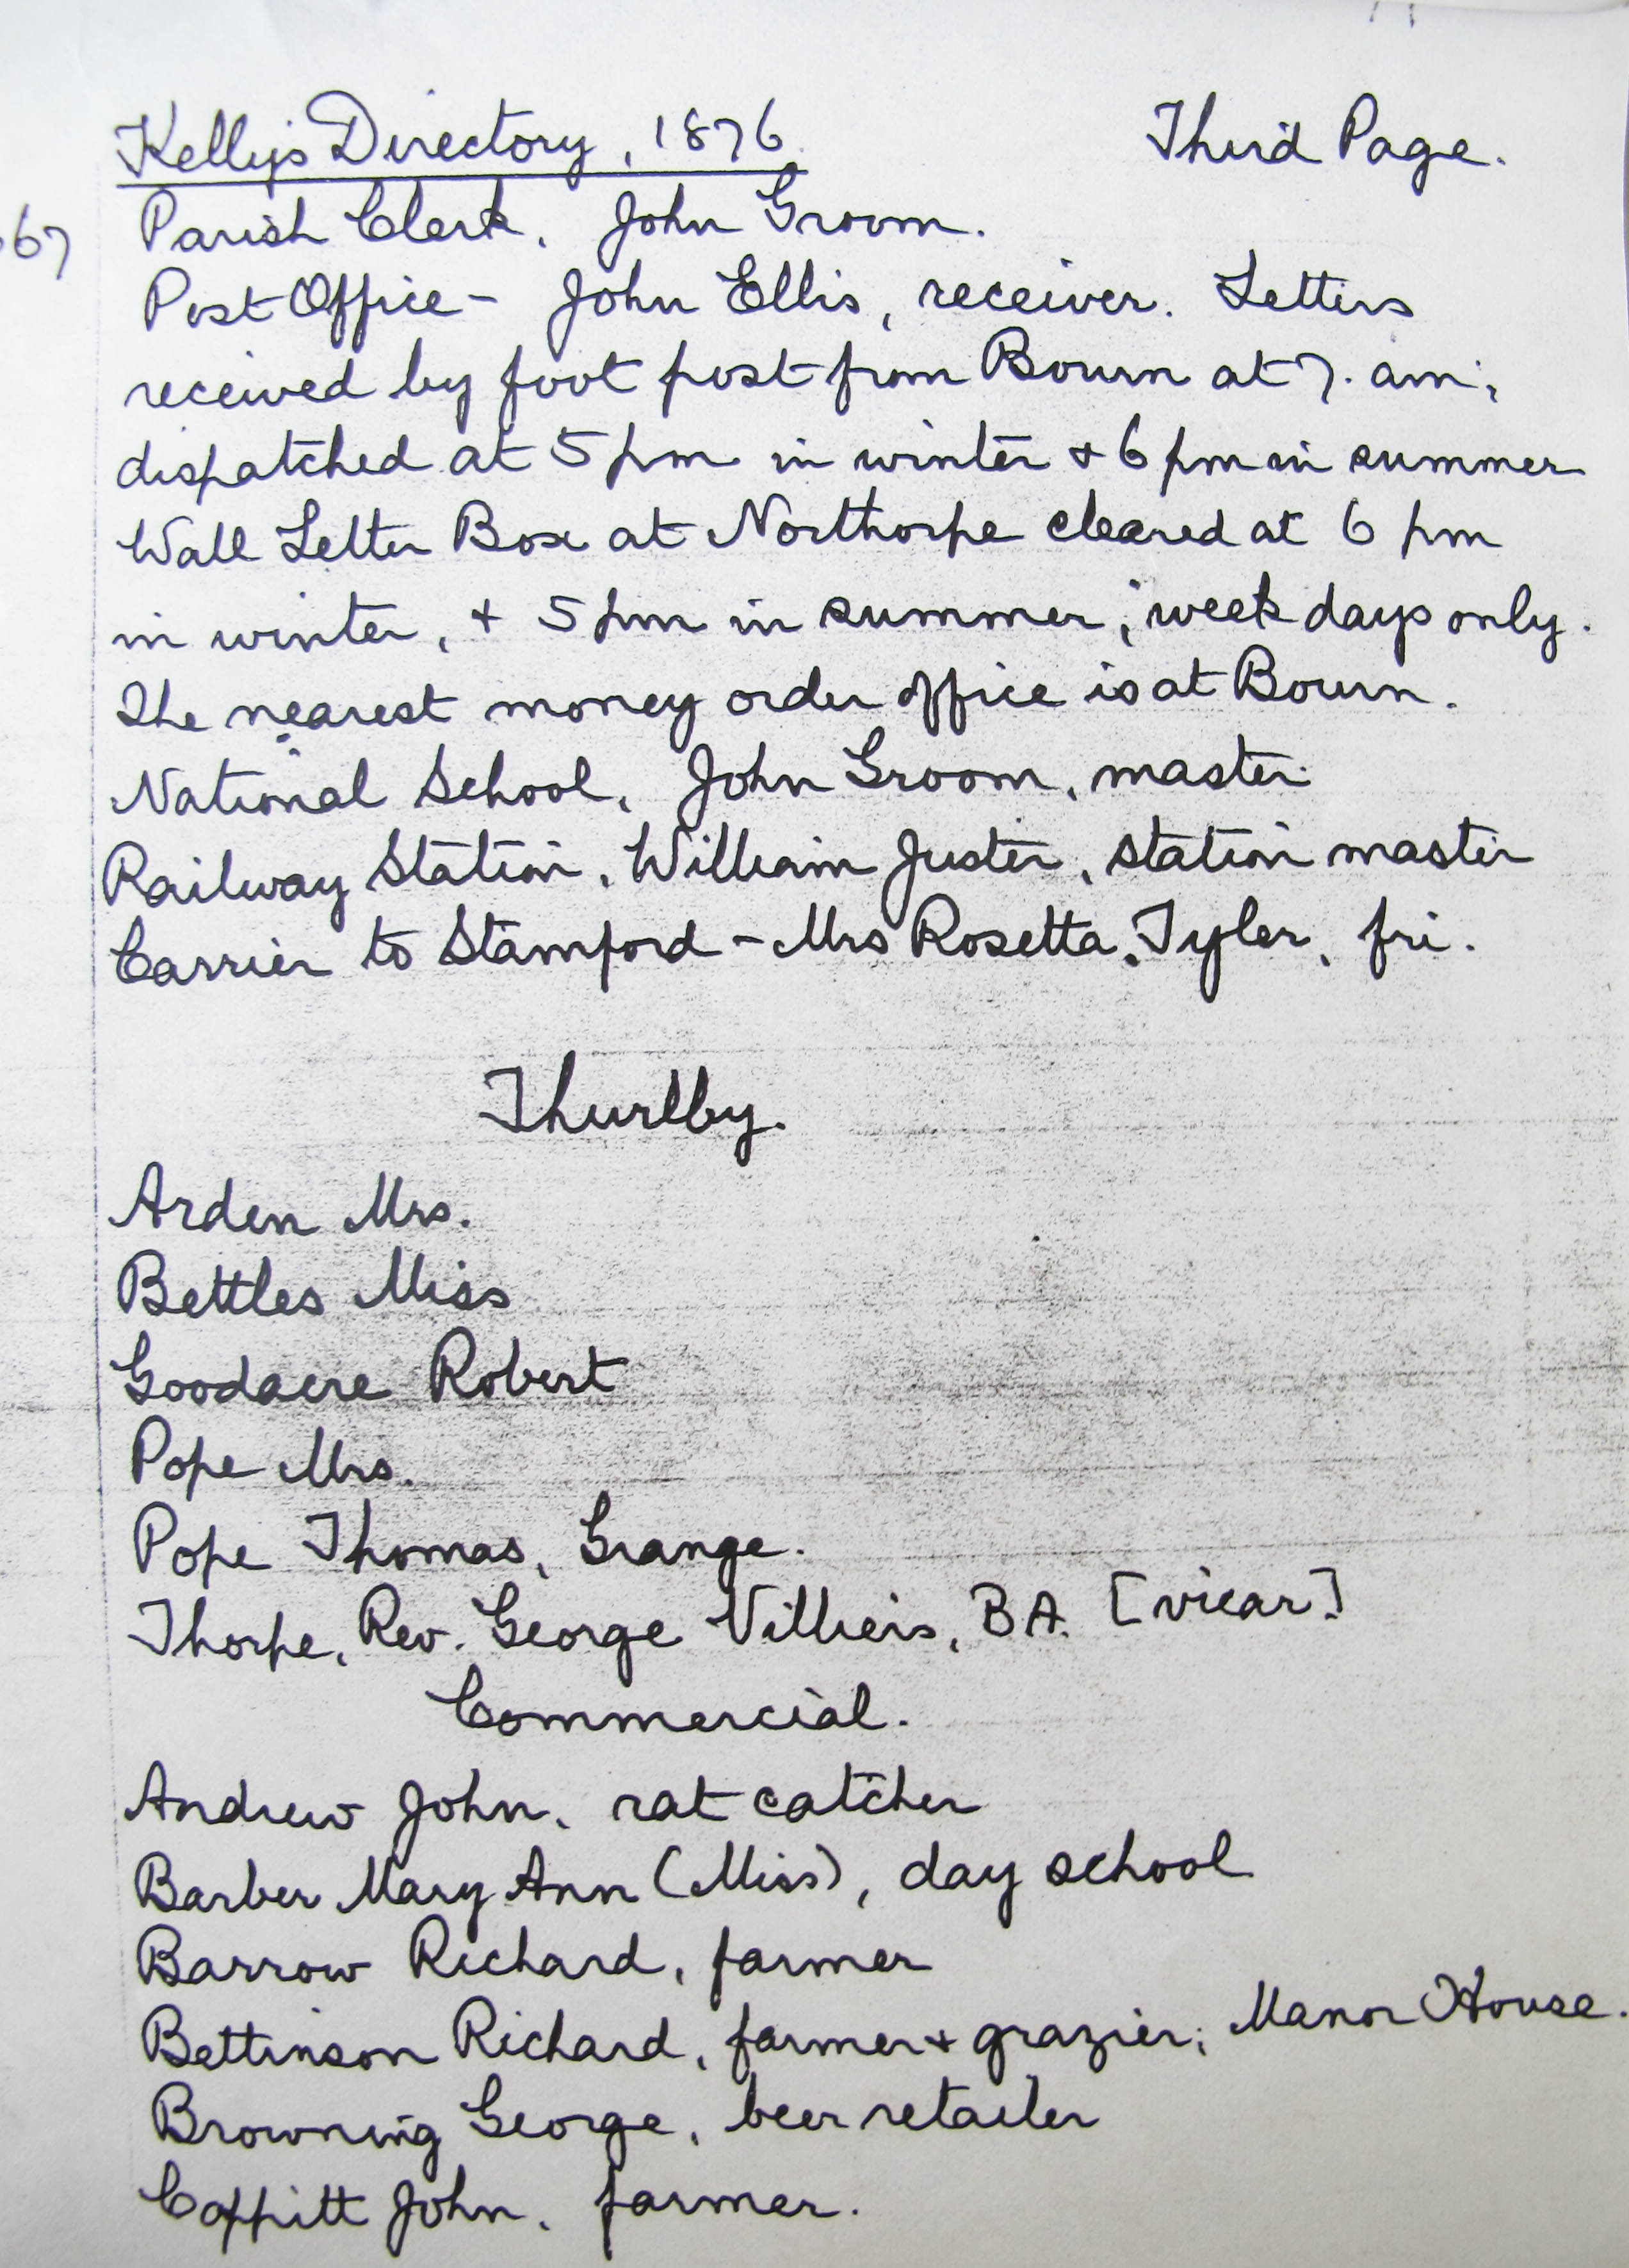 Kellys Directory, 1876. Third Page.
67 Parish Clerk, John Groom.
Post Office - John Ellis, receiver. Letters
received by foot post from Bourn at 7. am;
dispatched at 5 pm in winter + 6 pm in summer
Wall Letter Box at Northorpe cleared at 6 pm
in winter, + 5 pm in summer; week days only.
The nearest money order office is at Bourn.
National School, John Groom, master
Railway Station, William Juster, station master
Carrier to Stamford - Mrs Rosetta Tyler, fri.
Thurlby.
Arden Mrs.
Bettles Miss
Goodacre Robert
Pope Mrs.
Pope Thomas, Grange.
Thorpe, Rev. George Villiers, BA. [vicar]
Commercial.
Andrew John, rat catcher
Barber Mary Ann (Miss), day school
Barrow Richard, farmer
Bettinson Richard, farmer + grazier; Manor House.
Browning George, beer retailer
Coppitt John, farmer.